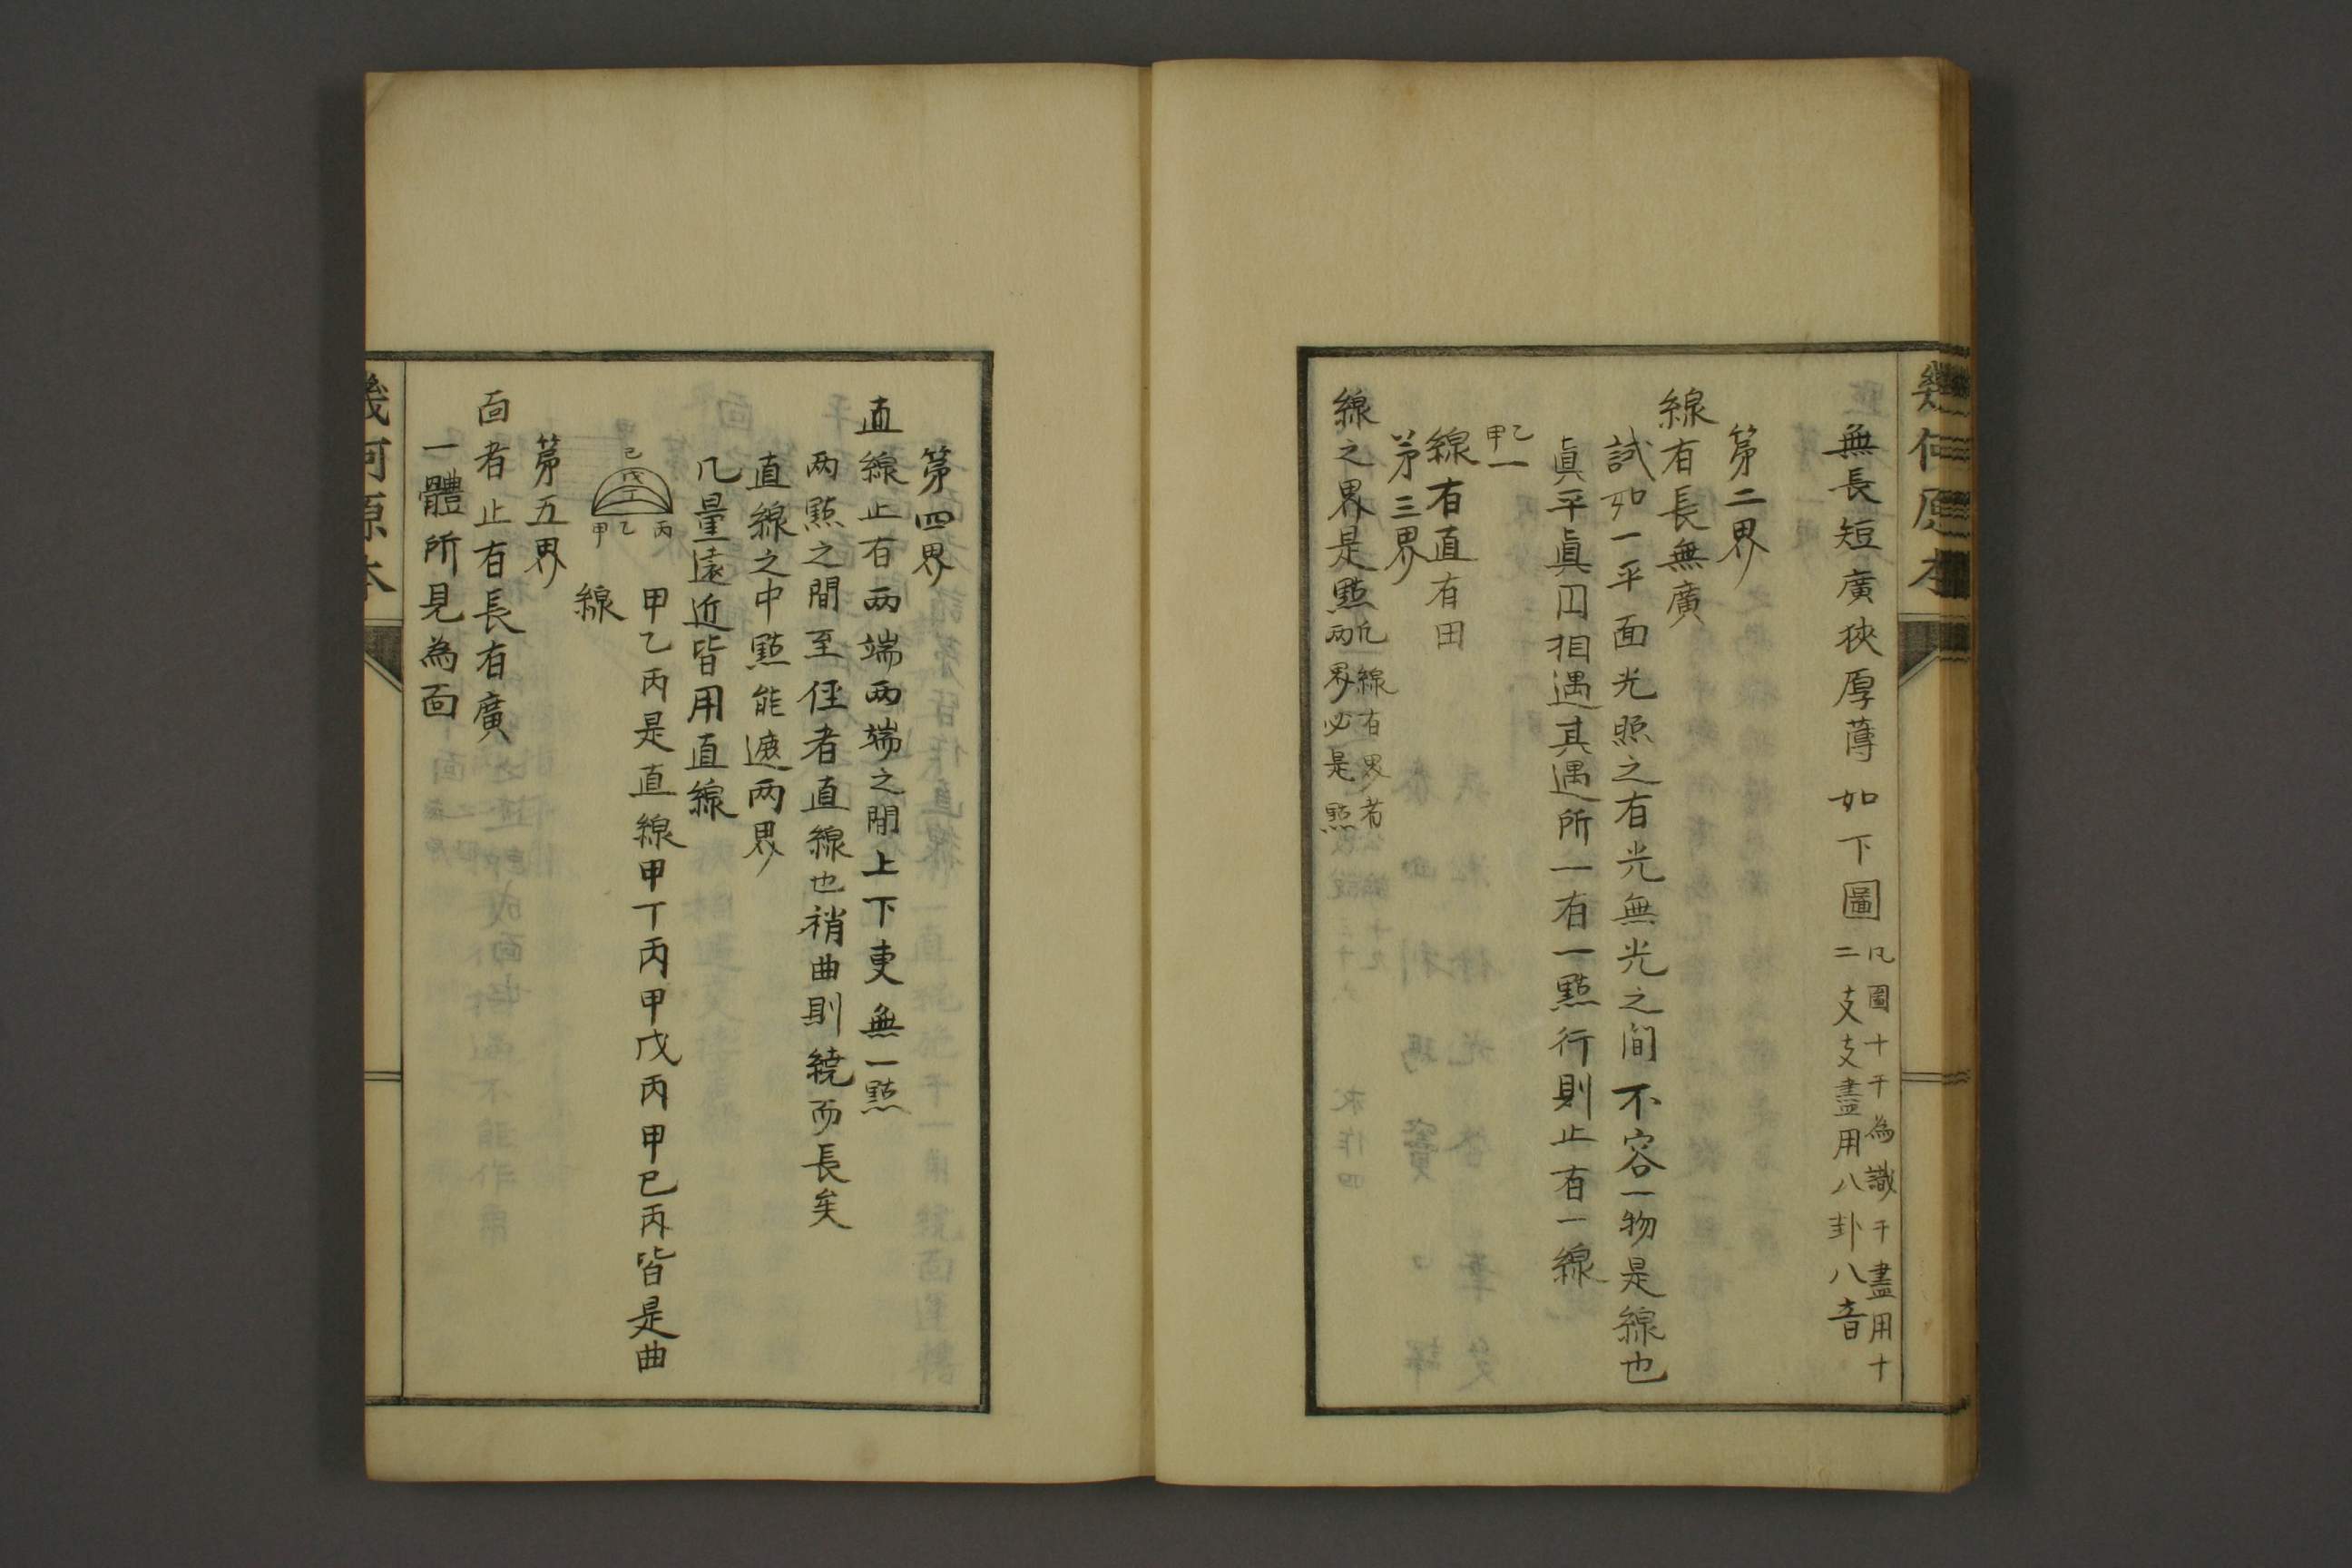 幾何原本
無長短廣狹厚薄如下圖
凡圖十干為識干盡用十
二支支盡用八卦八音
第二界
線有長無廣
試如一平面光照之有光無光之间不容一物是線也
眞平眞囙相遇其遇所一有一㸃行則止有一線
乙一甲
線有直有田
第三界
線之界是㸃
凡線有界者
兩界必是㸃
第四界
直線止有兩端兩端之間上下更無一㸃
兩㸃之間至徑者直線也稍曲則繞而長矣
直線之中㸃能遮兩界
凡量遠近皆用直線
己
戊
丁
甲乙丙
甲乙丙是直線甲丁丙甲戊丙甲已丙皆是曲
線
第五界
面者止有長有廣
一體所見為面
幾何原本